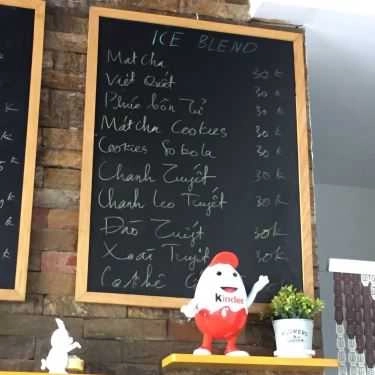 ICE BLEND
Matcha 30k
Việt Quất 30k
Phúc bồn Tử 30k
Matcha Cookies 30k
Cookies Sokola 30k
Chanh Tuyết 30k
Chanh Leo Tuyết 30k
Đào Tuyết 30k
Xoài Tuyết 30k
Kinder